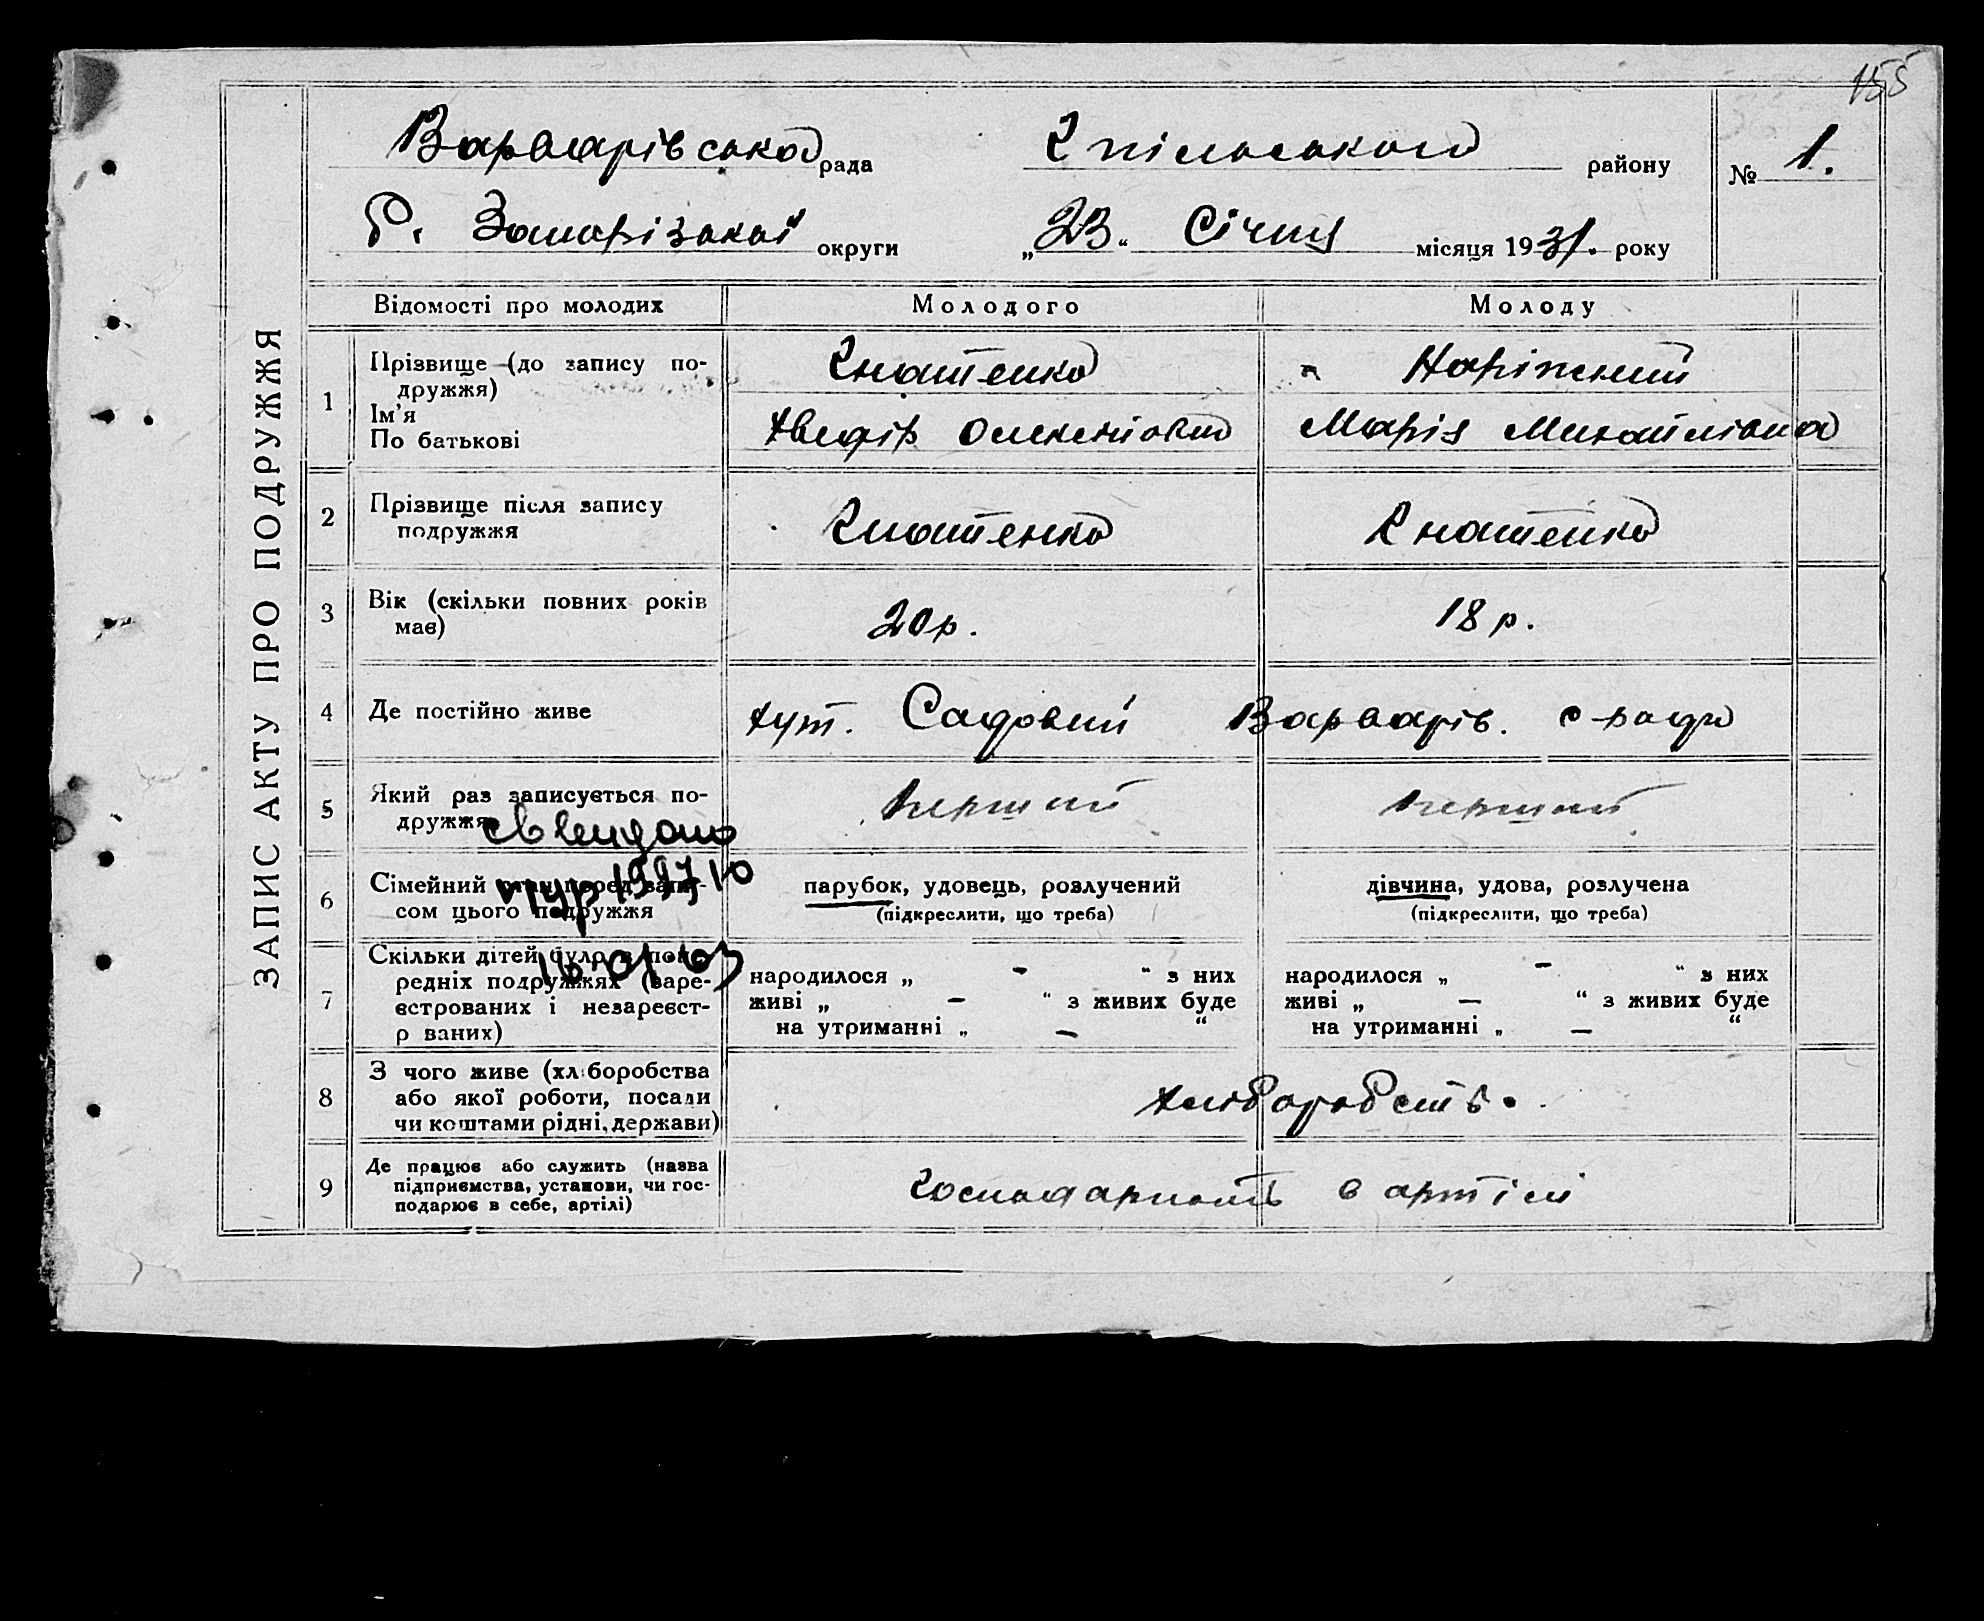 155
Варварівська рада
району
№ 1.
Р. Запорізької округи
„23“ Січня місяця 1931. року
ЗАПИС АКТУ ПРО ПОДРУЖЖЯ
Відомості про молодих
Молодого
Молоду
1
Прізвище (до запису по-
дружжя)
Ім'я
По батькові
Игнатенко
Хведір Олексійович
Марія Михайлівна
2
Прізвище після запису
подружжя
Игнатенко
Игнатенко
3
Вік (скільки повних років
має)
20 р.
18 р.
4
Де постійно живе
хут. Садовий Варварів. с-ради
5
Який раз записується по-
дружжя
Перший
перший
6
Сімейний стан перед запи-
сом цього подружжя
парубок, удовець, розлучений
(підкреслити, що треба)
дівчина, удова, розлучена
(підкреслити, що треба)
7
Скільки дітей було в попе-
редніх подружжях (заре-
єстрованих і незареєст-
р ваних)
народилося „ - “ з них
живі „ - “ з живих буде
на утриманні „ - “
народилося „ - “ з них
живі „ - “ з живих буде
на утриманні „ - “
8
З чого живе (хліборобства
або якої роботи, посади
чи коштами рідні, держави)
хліборобств.
9
Де працює або служить (назва
підприємства, установи, чи гос-
подарює в себе, артілі)
господарюють в артілі